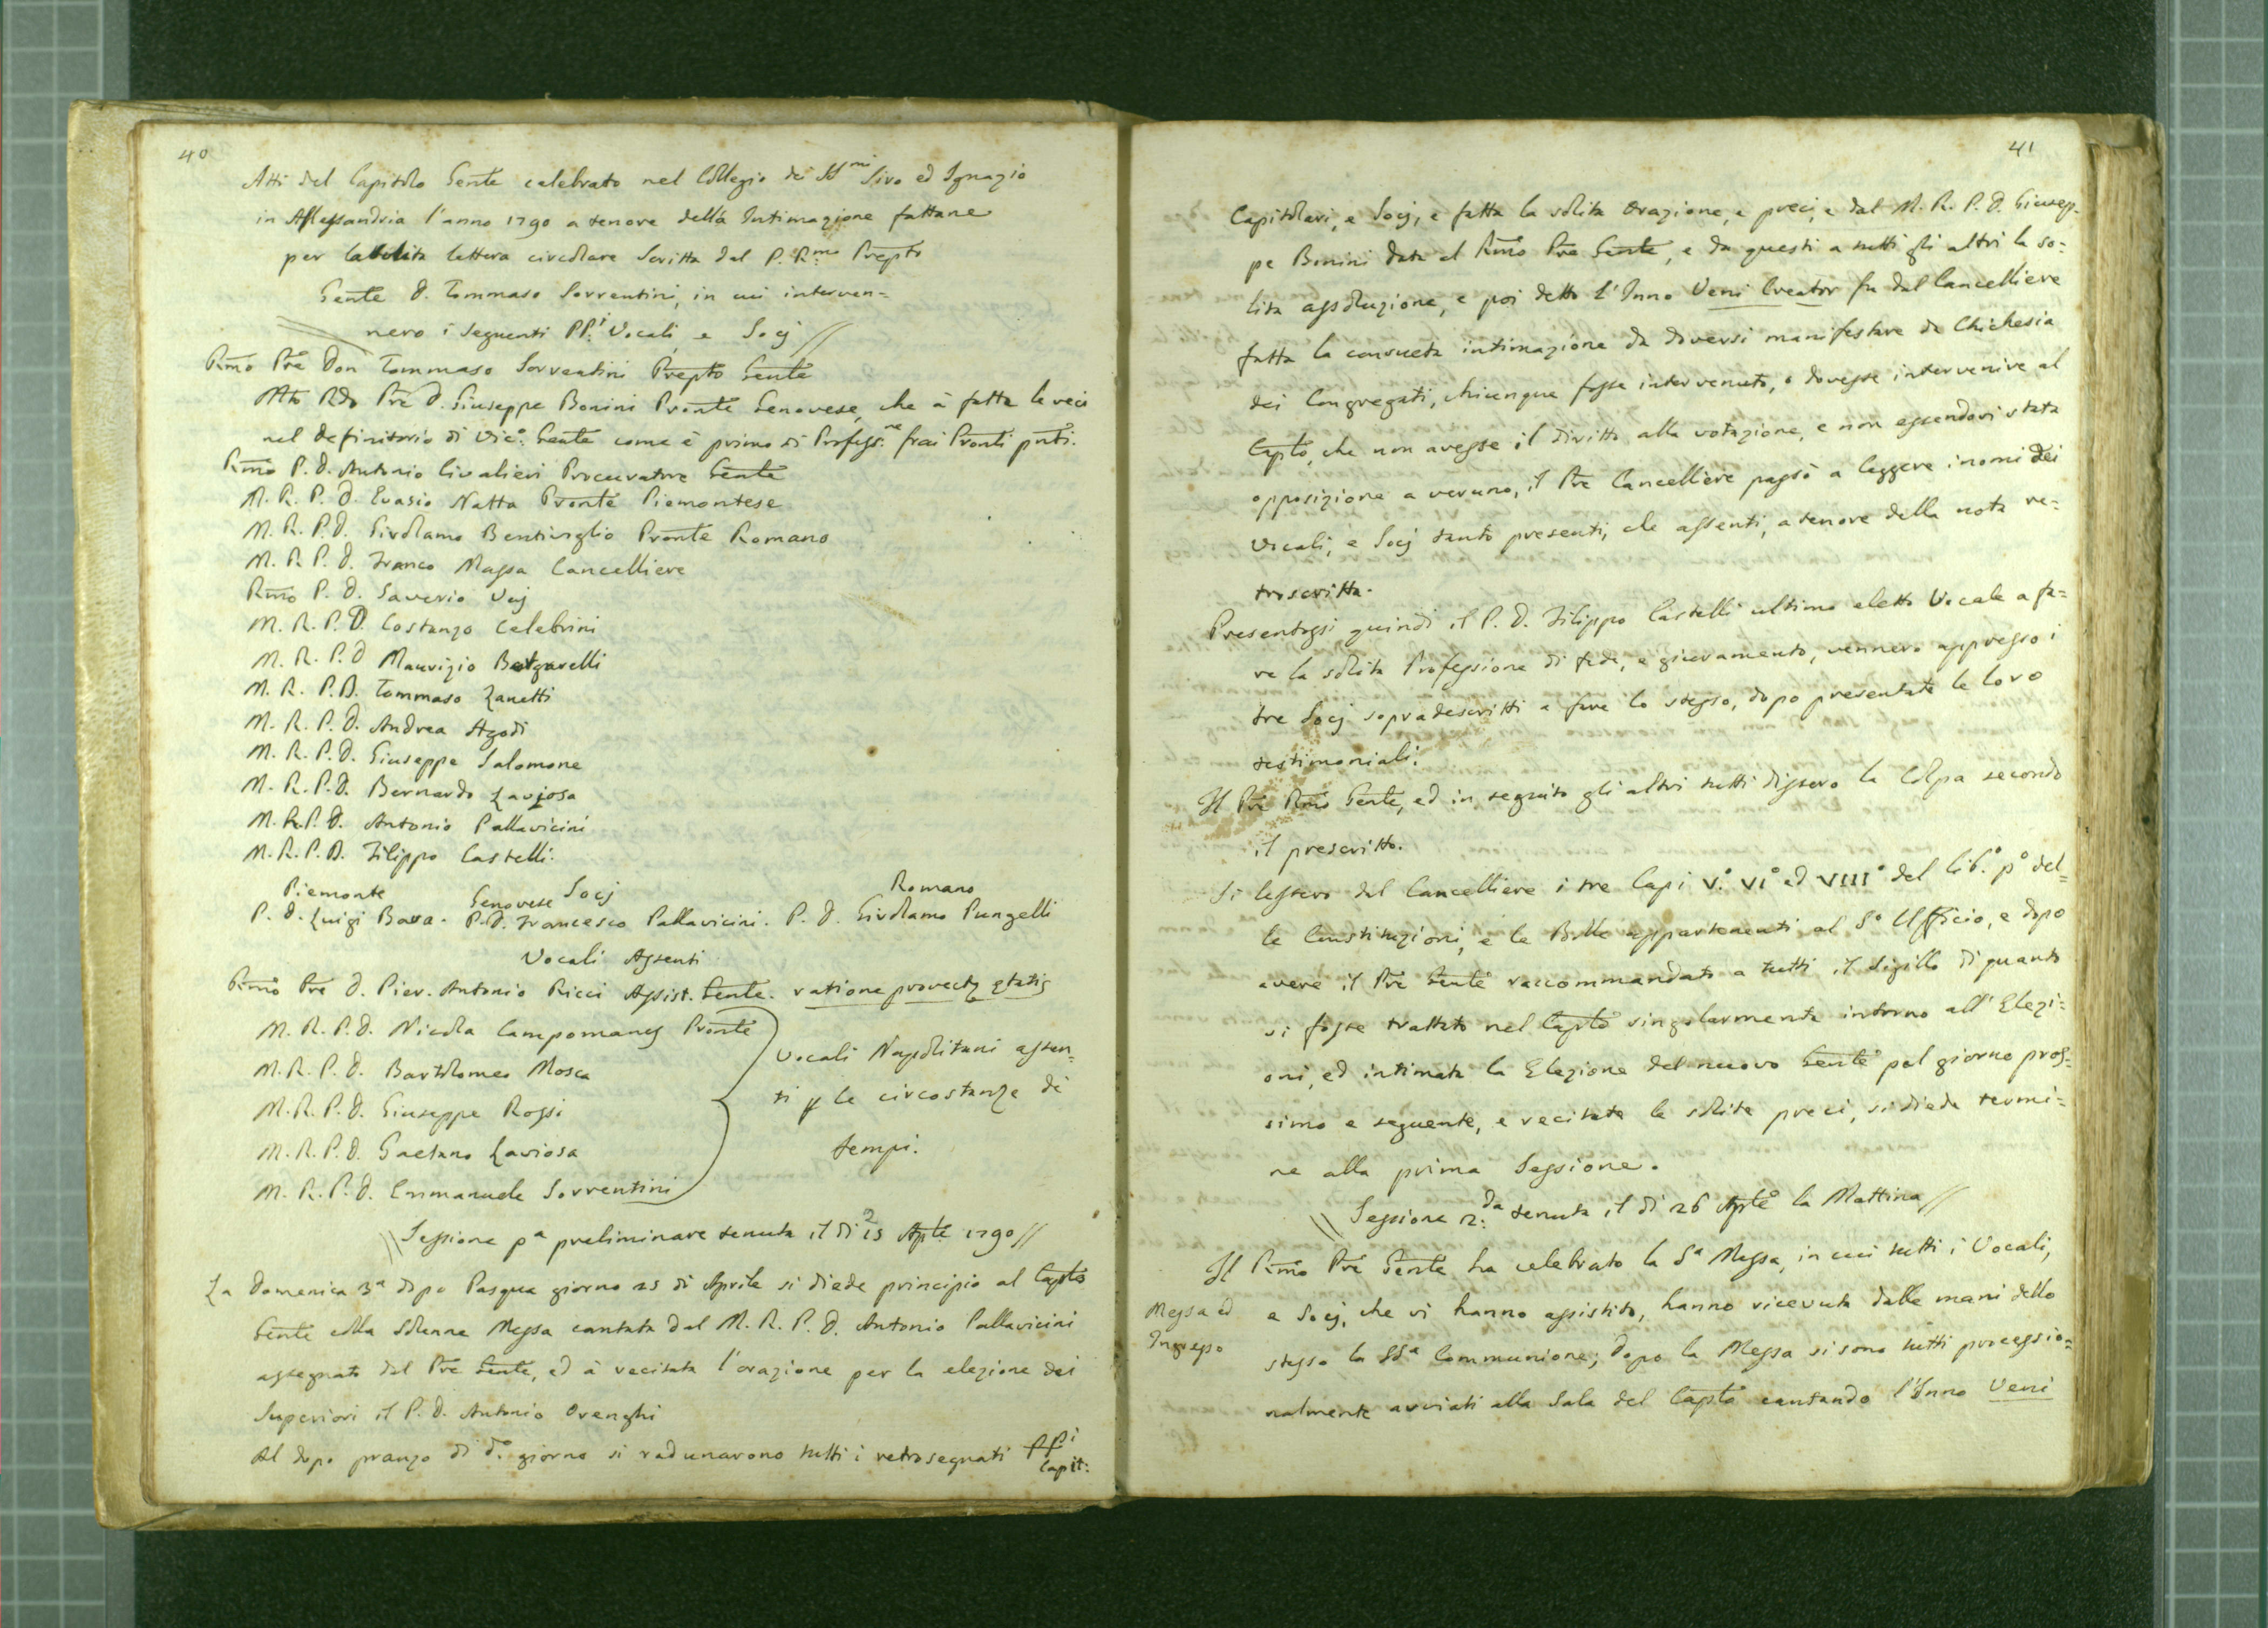 40
Atti del Capitolo Gente celebrato nel Collegio de SSmi Siro ed Ignazio
in Alessandria l'anno 1790 a tenore della Intimazione fattane
per la solita lettera circolare scritta dal P. Rmo Prepto
Gente D. Tommaso Sorrentini, in cui interven=
nero i seguenti PP.i Vocali, e Socj //
Rmo Pre Don Tommaso Sorrentini Prepto Gente
Mto Rdo Pre D. Giuseppe Bonini Pronte Genovese, che à fatta le veci
nel definitorio di Vic.o Gente come è primo di Profess.ne frai Pronti pnti.
Rmo P. D. Antonio Civalieri Procuratore Gente
M. R. P. D. Evasio Natta Pronte Piemontese
M. R. P. D. Girolamo Bentivoglio Pronte Romano
M. R. P. D. Franco Massa Cancelliere
Rmo P. D. Saverio Vaj
M. R. P. D. Costanzo Celebrini
M. R. P. D Maurizio
M. R. P. D. Tommaso Zanetti
M. R. P. D. Andrea Agodi
M. R. P. D. Giuseppe Salomone
M. R. P. D. Bernardo Laviosa
M. R. P. D. Antonio Pallavicini
M. R. P. D. Filippo Castelli.
Piemonte Genovese Socj Romano
P. D. Luigi Bava. P. D. Francesco Pallavicini. P. D. Girolamo Pungelli
Vocali Assenti
Rmo Pre D. Pier. Antonio Ricci Assist. Gente. ratione provectę ętatis
M. R. P. D. Nicola Campomanes Pronte
M. R. P. D. Bartolomeo Mosca
M. R. P. D. Giuseppe Rossi
M. R. P. D. Gaetano Laviosa
M. R. P. D. Emmanuele Sorrentini
Vocali Napolitani assen=
ti p le circostanze de
tempi.
\\ Sessione pa preliminare tenuta il dì 25 Aple 1790 //
La Domenica 3a dopo Pasqua giorno 25 di Aprile si diede principio al Capto
Gente colla solenne Messa cantata dal M. R. P. D. Antonio Pallavicini
assegnato dal Pre Gente, ed à recitata l'orazione per la elezione dei
Superiori il P. D. Antonio Orenghi
Al dopo pranzo di do. giorno si radunarono tutti i retrosegnati PPi
Capit:
41
Capitolari, e Socj, e fatta la solita orazione, e preci, e dal M. R. P. D. Giusep=
pe Bonini data al Rmo Pre Gente, e da questi a tutti gli altri la so=
lita assoluzione, e poi detto l'Inno Veni Creator fu dal Cancelliere
fatta la consueta intimazione da doversi manifestare da Chichesia
dei Congregati, chiunque fosse intervenuto, o dovesse intervenire al
Capto, che non avesse il diritto alla votazione, e non essendovi stata
opposizione a veruno, il Pre Cancelliere passò a leggere i nomi dei
Vocali, e Socj tanto presenti, che assenti, a tenore della nota re=
troscritta.
Presentossi quindi il P. D. Filippo Castelli ultimo eletto Vocale a fa=
re la solita Professione di fede, e giuramento, vennero appresso i
tre Socj sopradescritti a fare lo stesso, dopo presentate le loro
testimoniali.
Il Pre Rmo Gente, ed in seguito gli altri tutti dissero la Colpa secondo
il prescritto.
Si lessero dal Cancelliere i tre Capi V.o VIo ed VIIIo del lib.o po del=
le Constituzioni, e le Bolle appartenenti al So Ufficio, e dopo
avere il Pre Gente raccommandato a tutti il sigillo di quanto
si fosse trattato nel Capto singolarmente intorno all'Elezi=
oni, ed intimata la Elezione del nuovo Gente pel giorno pros=
simo e seguente, e recitate le solite preci, si diede termi=
ne alla prima Sessione.
\\ Sessione 2.da tenuta il dì 26 Aple la Mattina //
Il Rmo Pre Gente ha celebrato la Sa Messa, in cui tutti i Vocali,
Messa ed
Ingresso
e Socj, che vi hanno assistito, hanno ricevuta dalle mani dello
stesso la SSa Communione; dopo la Messa si sono tutti processio=
nalmente avviati alla Sala del Capto cantando l'Inno Veni